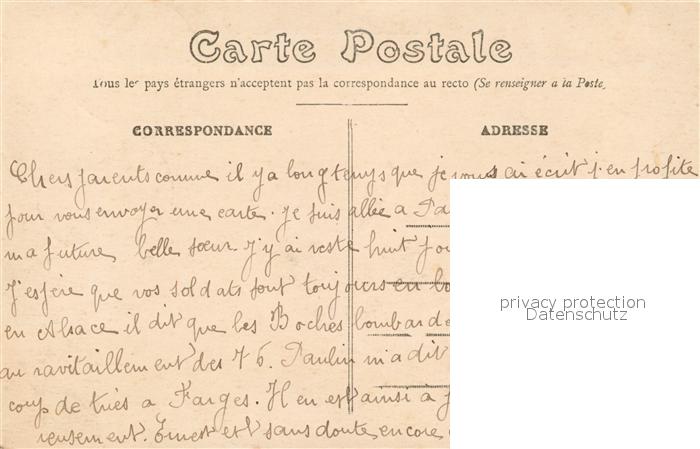 Carte Postale
Tous les pays étrangers n'acceptent pas la correspondance au recto (Se renseigner a la Poste)
CORRESPONDANCE
ADRESSE
Chers parents comme il y a longtemps que je vous ai écrit j'en profite
pour vous envoyer une carte. Je suis allée a
ma future belle sœur. J'y ai resté huit
J'espère que vos soldats sont toujours en
en Alsace il dit que les Boches
au ravitaillement des 76. Paulin m'a dit
coup de tués a Farges. Il en est ainsi a
reusement. Ernest est sans doute encore
privacy protection
Datenschutz